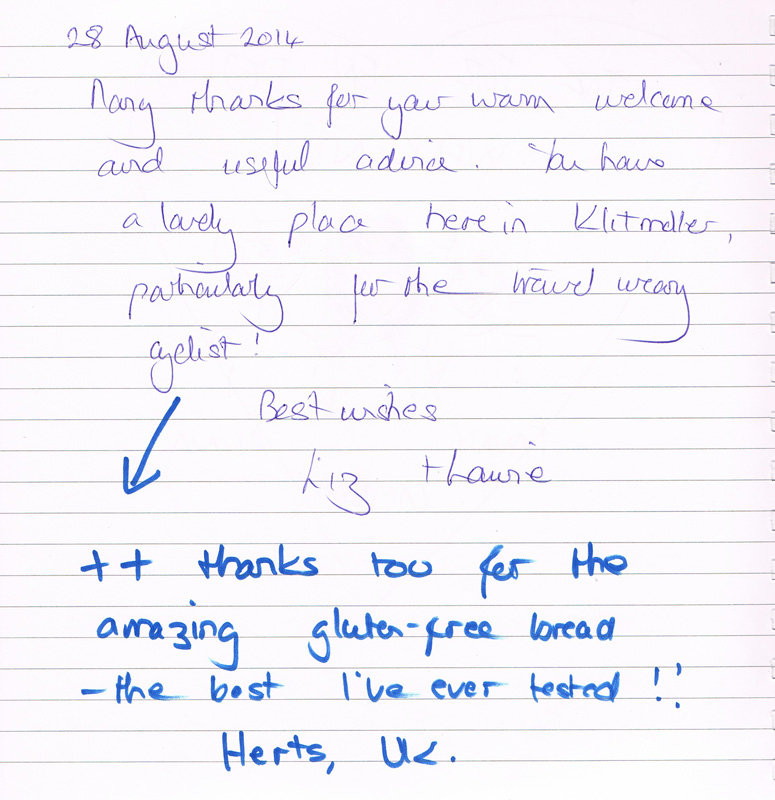 28 August 2014
Many thanks for your warm welcome
and useful advice. You have
a lovely place here in Klitmøller,
particularly for the travel weary
cyclist!
Best wishes
Liz + Laurie
++ thanks too for the
amazing gluten-free bread
- the best I've ever tasted!!
Herts, UK.